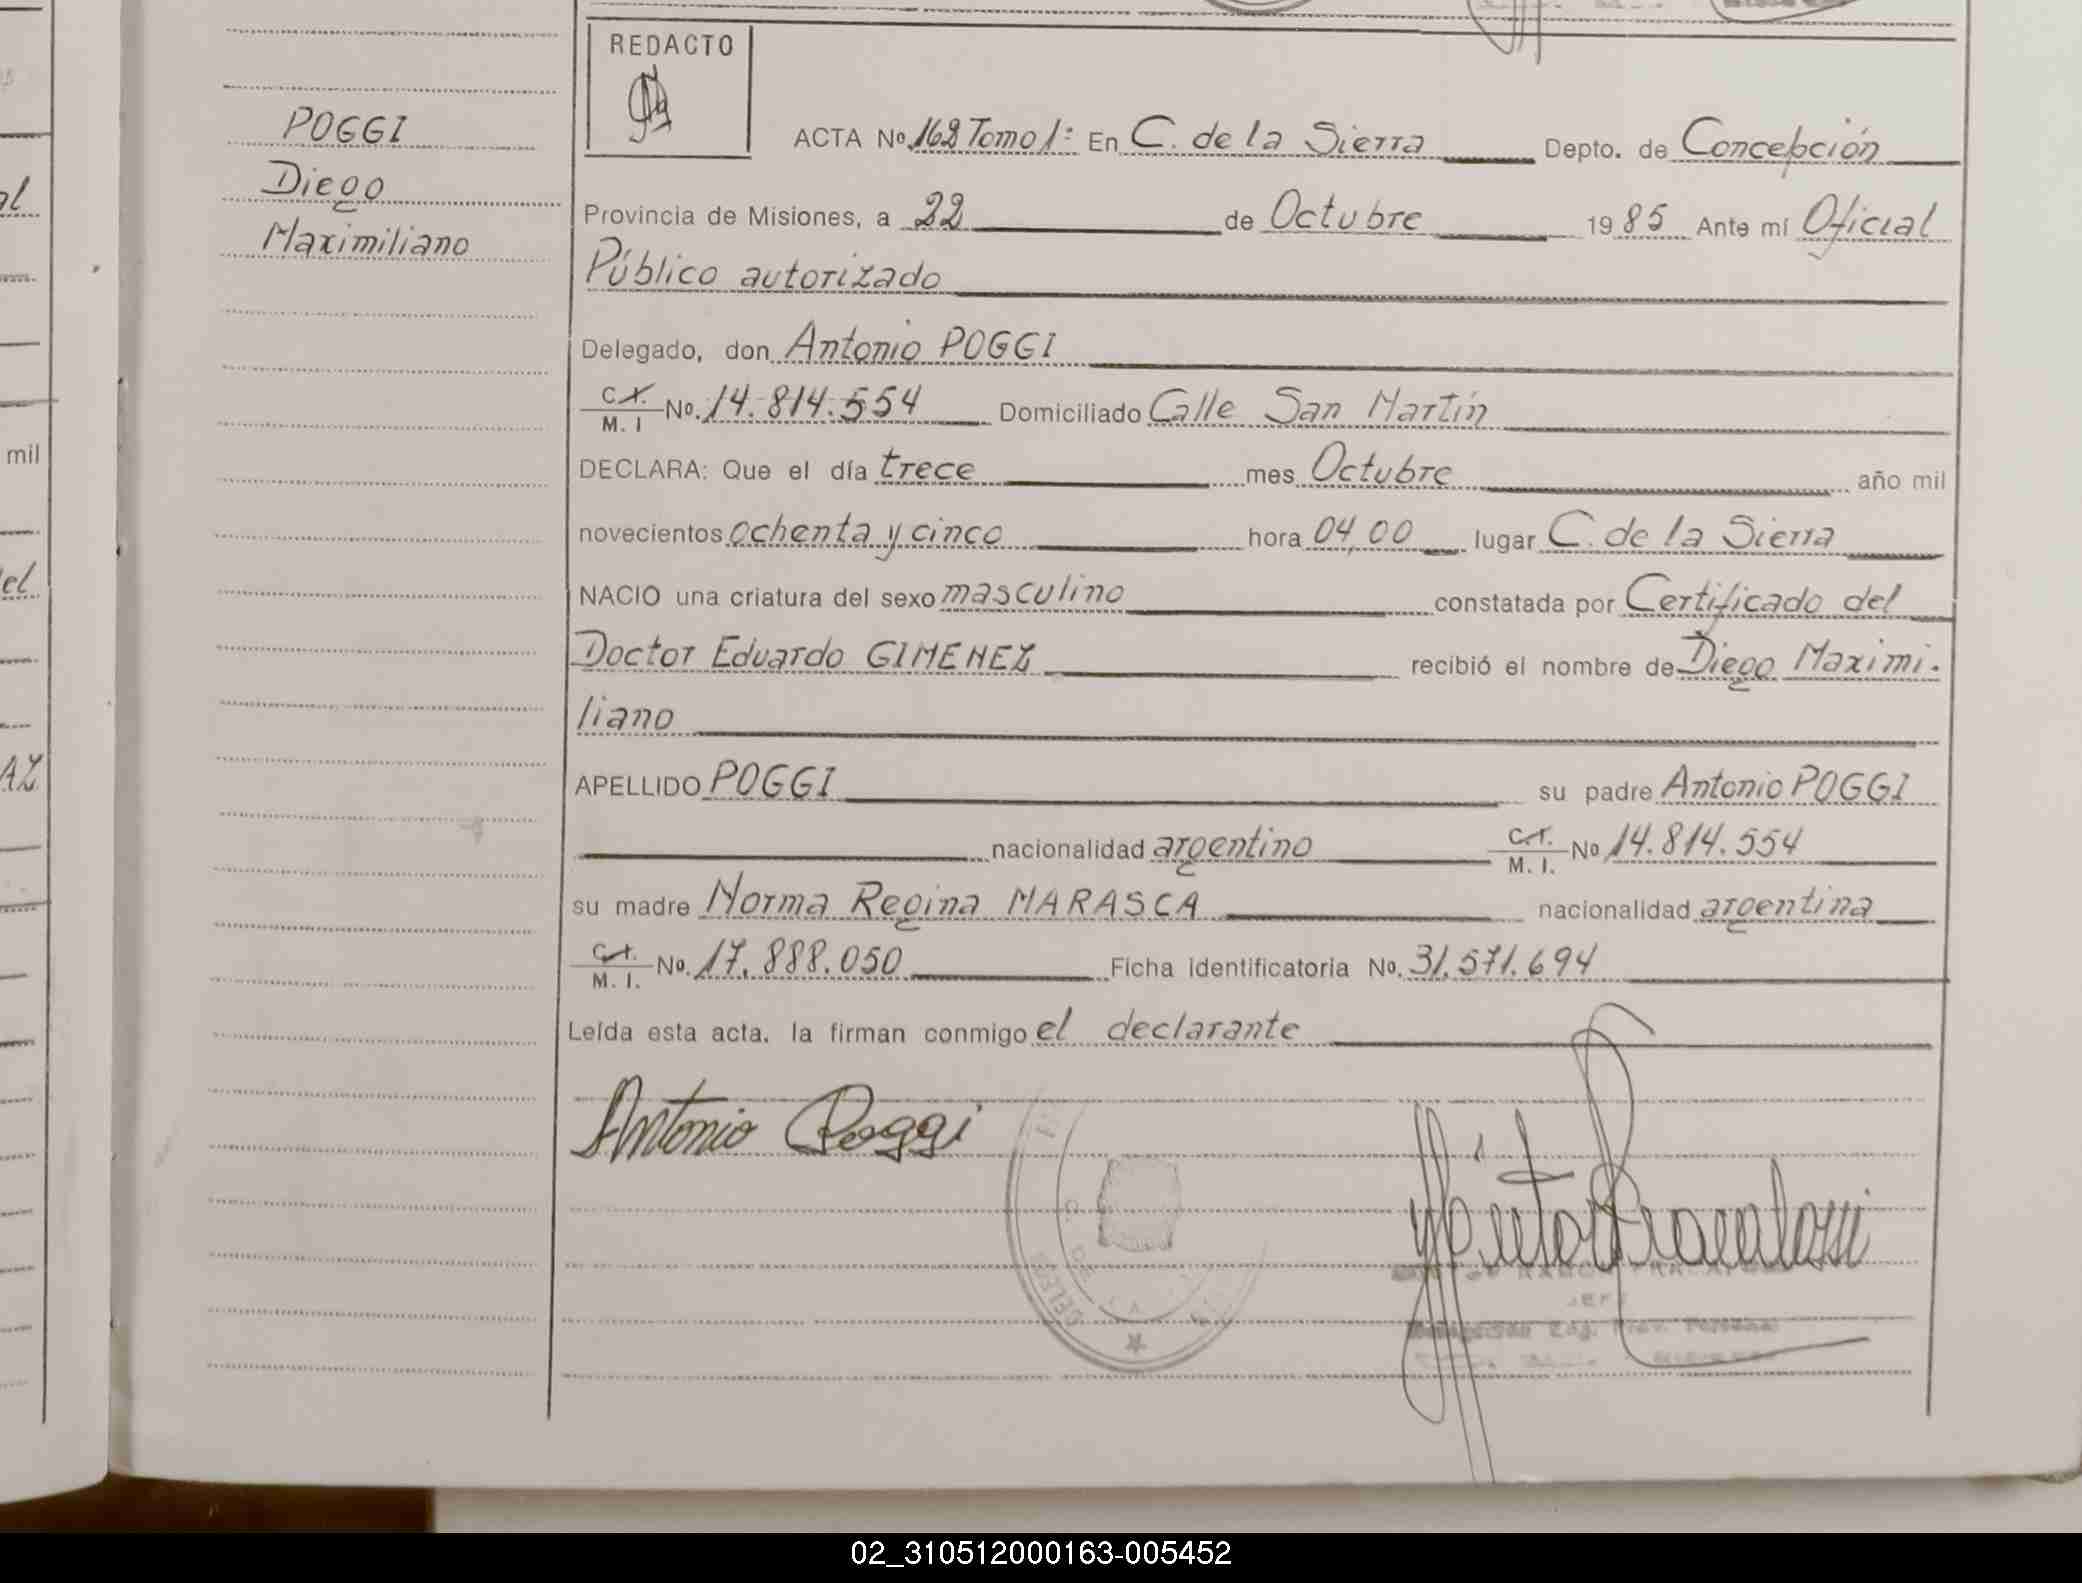 REDACTO
POGGI
Diego
Maximiliano
ACTA No. 162 Tomo 1: En C. de la Sierra Depto. de Concepción
Provincia de Misiones, a 22 de Octubre 1985 Ante mí Oficial
Público autorizado
Delegado, don Antonio POGGI
C.I. M. I No. 14.814.554 Domiciliado Calle San Martín
DECLARA: Que el día trece mes Octubre año mil
novecientos ochenta y cinco hora 04,00 lugar C. de la Sierra
NACIO una criatura del sexo masculino constatada por Certificado del
Doctor Eduardo GIMENEZ recibió el nombre de Diego Maximi-
liano
APELLIDO POGGI su padre Antonio POGGI
nacionalidad argentino C.I. M. I. No 14.814.554
su madre Norma Regina MARASCA nacionalidad argentina
C.I. M. I. No. 17.888.050 Ficha identificatoria No. 31.571.694
Leída esta acta, la firman conmigo el declarante
Antonio Poggi
mil
el
AZ
02_310512000163-005452